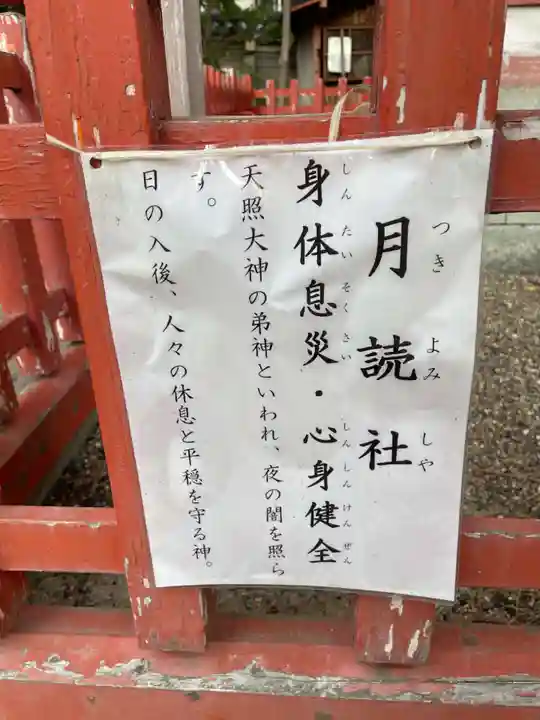 月読社
つきよみしや
身体息災・心身健全
しんたいそくさい しんしんけんぜん
天照大神の弟神といわれ、夜の闇を照ら
す。
日の入後、人々の休息と平穏を守る神。